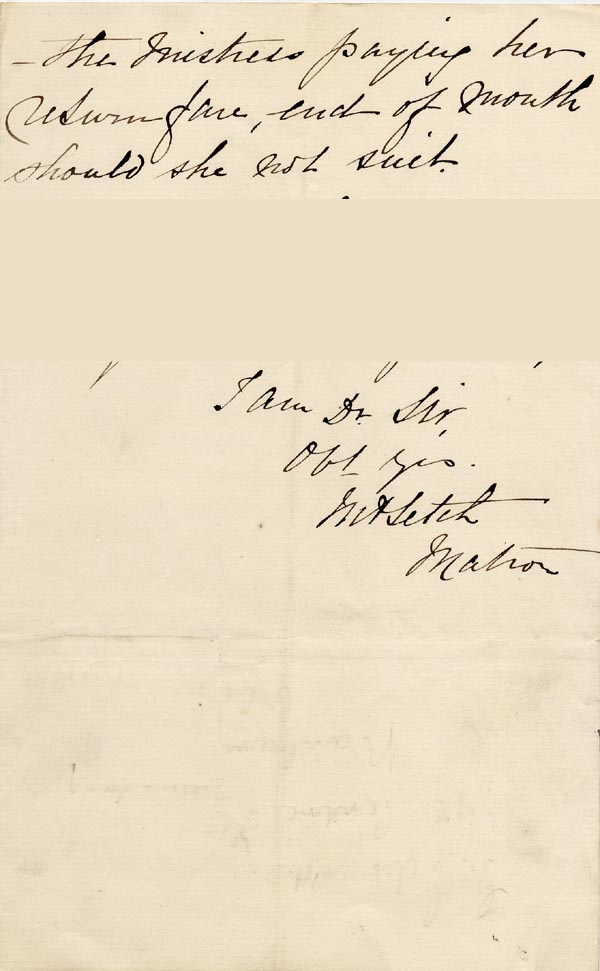 - the Mistress paying her
return fare, end of month
should she not suit.
I am Dr Sir,
Obt yrs.
Matron